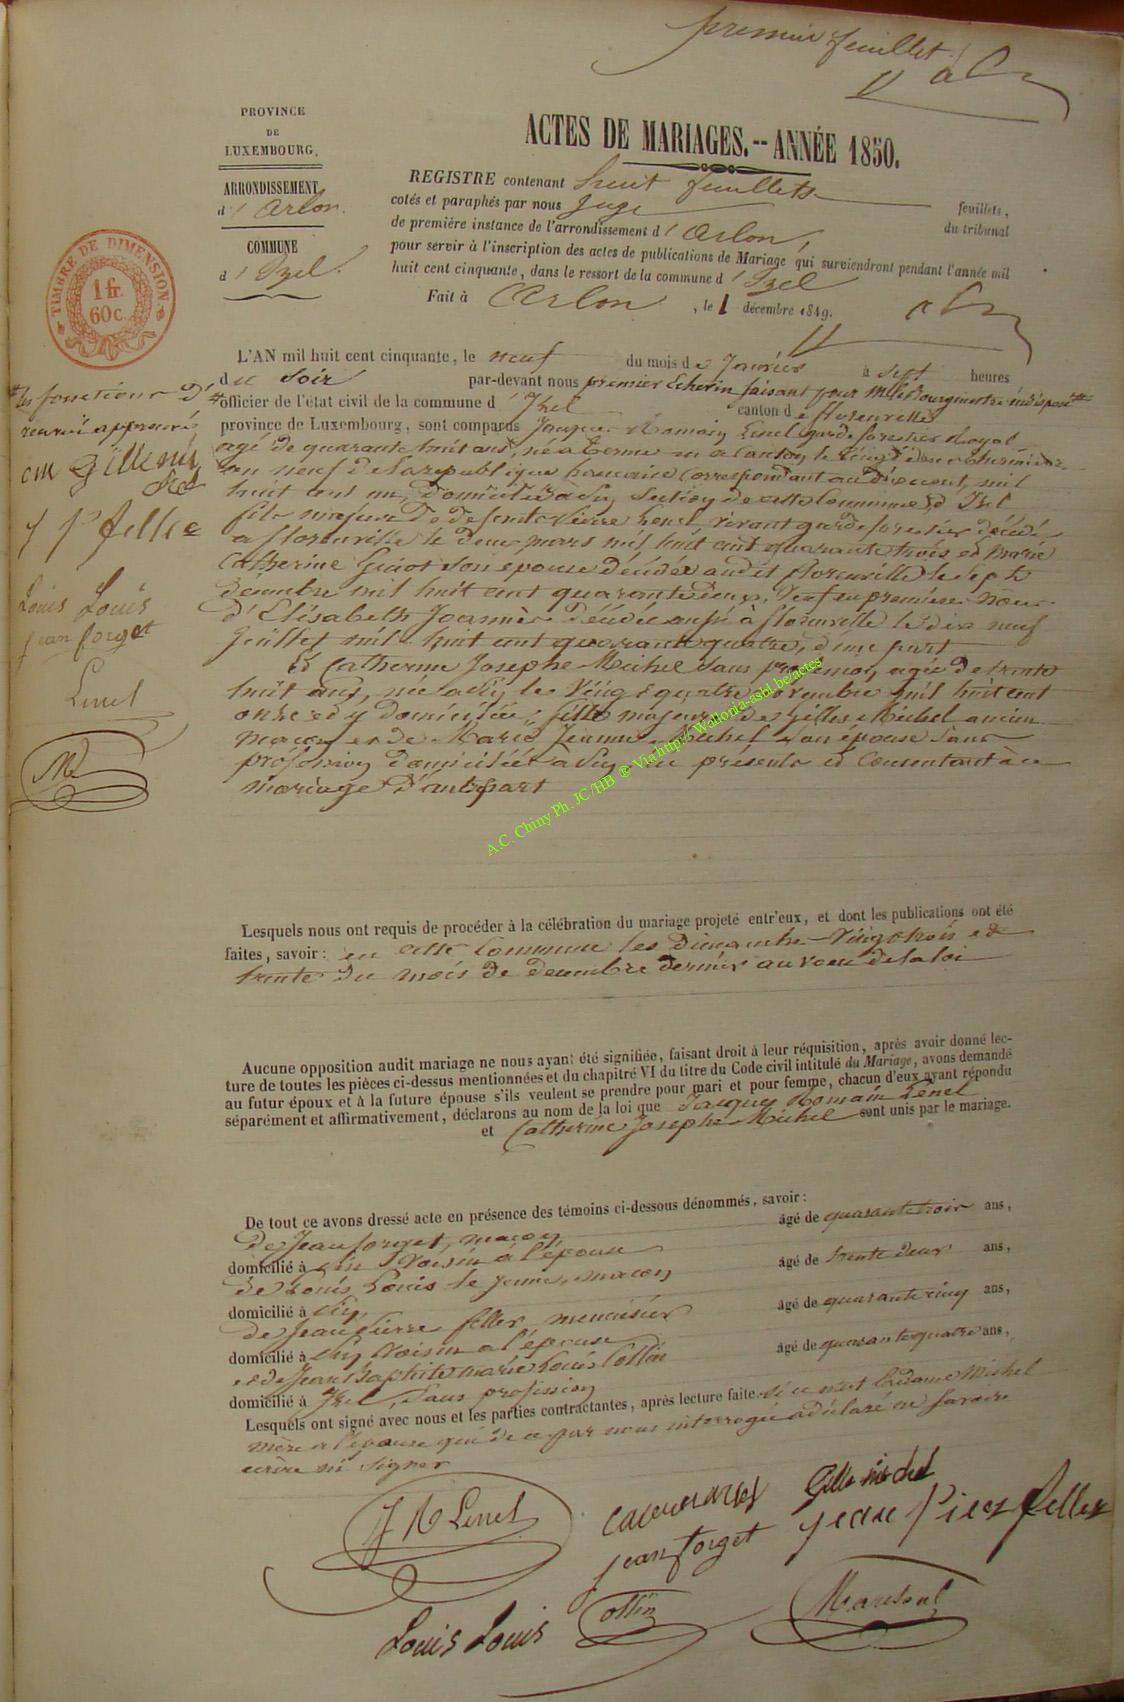 premier feuillet
PROVINCE
DE
LUXEMBOURG.
ARRONDISSEMENT
d' Arlon.
COMMUNE
d' Izel.
TIMBRE DE DIMENSION
1 fr.
60 c.
ACTES DE MARIAGES.-- ANNÉE 1850.
REGISTRE contenant huit feuillets feuillets,
cotés et paraphés par nous Juge du tribunal
de première instance de l'arrondissement d' Arlon,
pour servir à l'inscription des actes de publications de Mariage qui surviendront pendant l'année mil
huit cent cinquante, dans le ressort de la commune d' Izel
Fait à Arlon, le 1 décembre 1849.
L'AN mil huit cent cinquante, le neuf du mois de Janvier à sept heures
du soir par-devant nous premier Echevin faisant pour Mr le Bourgmestre indisposé
officier de l'état civil de la commune d' Izel canton de florenville
province de Luxembourg, sont comparus Jacques Romain Lenel garde forestier Royal
agé de quarante huit ans, né à
an neuf de la république française correspondant au dix août mil
huit cent un, domicilié à section de cette commune d'Izel
fils majeur de defunts Pierre Lenel, vivant garde forestier décédé
à florenville le deux mars mil huit cent quarante trois et Marie
Catherine Guiot son épouse décédée audit florenville le sept
décembre mil huit cent quarante deux, Veuf en premières noces
d'Elisabeth Joannès décédée aussi à florenville le dix neuf
Juillet mil huit cent quarante quatre, d'une part
Et Catherine Josephe Michel sans profession, agée de trente
huit ans, née à le Vingt quatre novembre mil huit cent
onze et y domiciliée, fille majeure de Gilles Michel ancien
maçon et de Marie Jeanne Michel son épouse sans
profession domiciliés à ici présents et Consentant à ce
mariage d'autre part
les fonctions d'
approuvé
J P feller
Louis Louis
jean forget
Lenel
A.C. Chiny Ph. JC/HB ® Via http:// Wallonia-asbl.be/actes
Lesquels nous ont requis de procéder à la célébration du mariage projeté entr'eux, et dont les publications ont été
faites, savoir : en cette Commune les Dimanche Vingt trois et
trente du mois de décembre dernier au voeu de la loi
Aucune opposition audit mariage ne nous ayant été signifiée, faisant droit à leur réquisition, après avoir donné lec-
ture de toutes les pièces ci-dessus mentionnées et du chapitre VI du titre du Code civil intitulé du Mariage, avons demandé
au futur époux et à la future épouse s'ils veulent se prendre pour mari et pour femme, chacun d'eux ayant répondu
séparément et affirmativement, déclarons au nom de la loi que Jacques Romain Lenel
et Catherine Josephe Michel sont unis par le mariage.
De tout ce avons dressé acte en présence des témoins ci-dessous dénommés, savoir :
de Jean forget, maçon âgé de quarante trois ans,
domicilié à Voisin à l'épouse
de Louis Louis le jeune, maçon âgé de trente deux ans,
domicilié à
de Jean Pierre feller menuisier âgé de quarante cinq ans,
domicilié à Voisin à l'épouse
et de Jean Baptiste Marie Louis Collin âgé de quarante quatre ans,
domicilié à Izel, sans profession
Lesquels ont signé avec nous et les parties contractantes, après lecture faite. si ce n'est la dame Michel
mère à l'épouse qui de ce par nous interrogée a déclaré ne savoir
écrire ni signer
J R Lenel
Gille michel
jean forget
jean Pier feller
Louis Louis
Collin